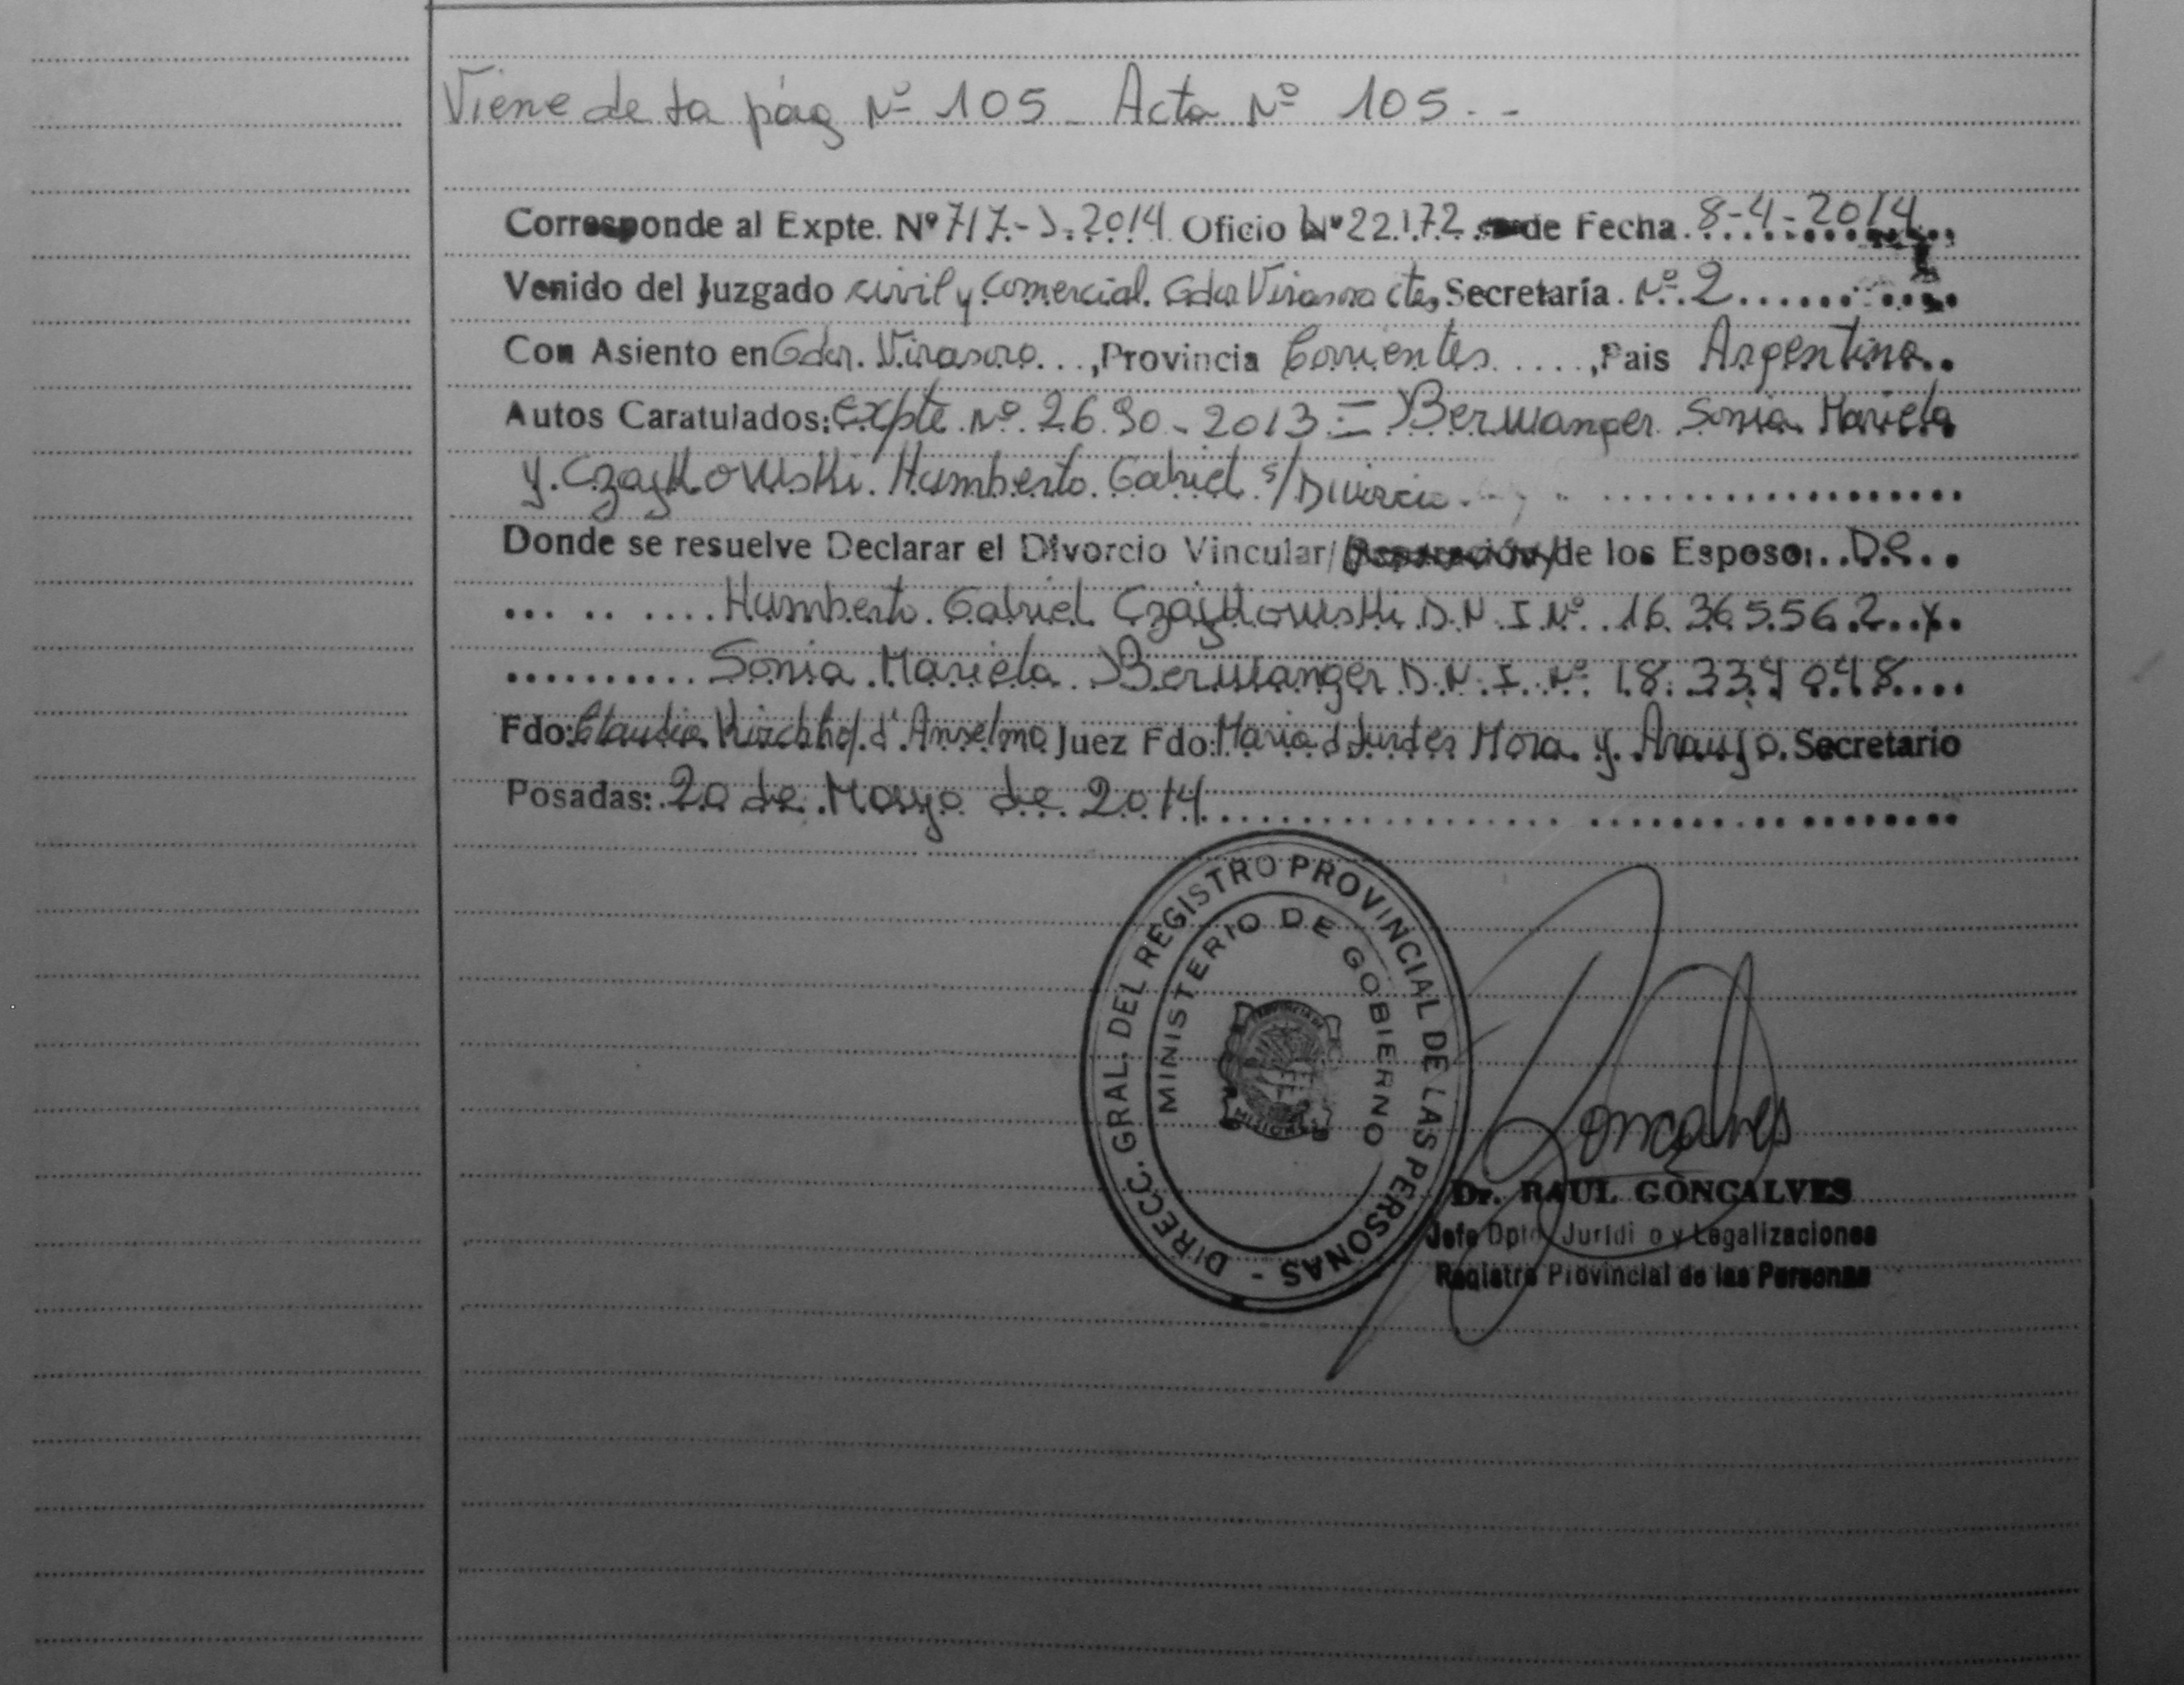 Viene de la pág Nº 105 - Acta Nº 105 - -
Corresponde al Expte. Nº 717-J-2014 Oficio Nº 22172 de Fecha 8-4-2014
Venido del Juzgado civil y Comercial. Gdor Virasoro ctes, Secretaría Nº 2
Con Asiento en Gdor. Virasoro, Provincia Corrientes, Pais Argentina
Autos Caratulados: Expte Nº 2690-2013 = Berwanger Sonia Mariela
y Czajkowski Humberto Gabriel s/Divorcio
Donde se resuelve Declarar el Divorcio Vincular/ de los Esposo: De
Humberto Gabriel Czajkowski D.N.I.Nº 16.365.562 y
Sonia Mariela Berwanger D.N.I. Nº 18.334.048
Fdo: Claudia Kirchhof d'Anselmo Juez Fdo: Maria d Lurdes Mora y Araujo. Secretario
Posadas: 20 de Mayo de 2014
DIRECC. GRAL. DEL REGISTRO PROVINCIAL DE LAS PERSONAS -
MINISTERIO DE GOBIERNO
PROVINCIA DE
MISIONES
Goncalves
Dr. RAUL GONCALVES
Jefe Dpto Juridi o y Legalizaciones
Registro Provincial de las Personas